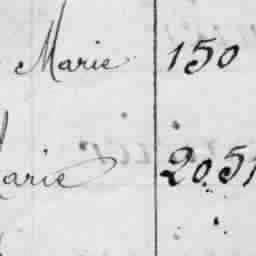 Marie 150
arie 2051